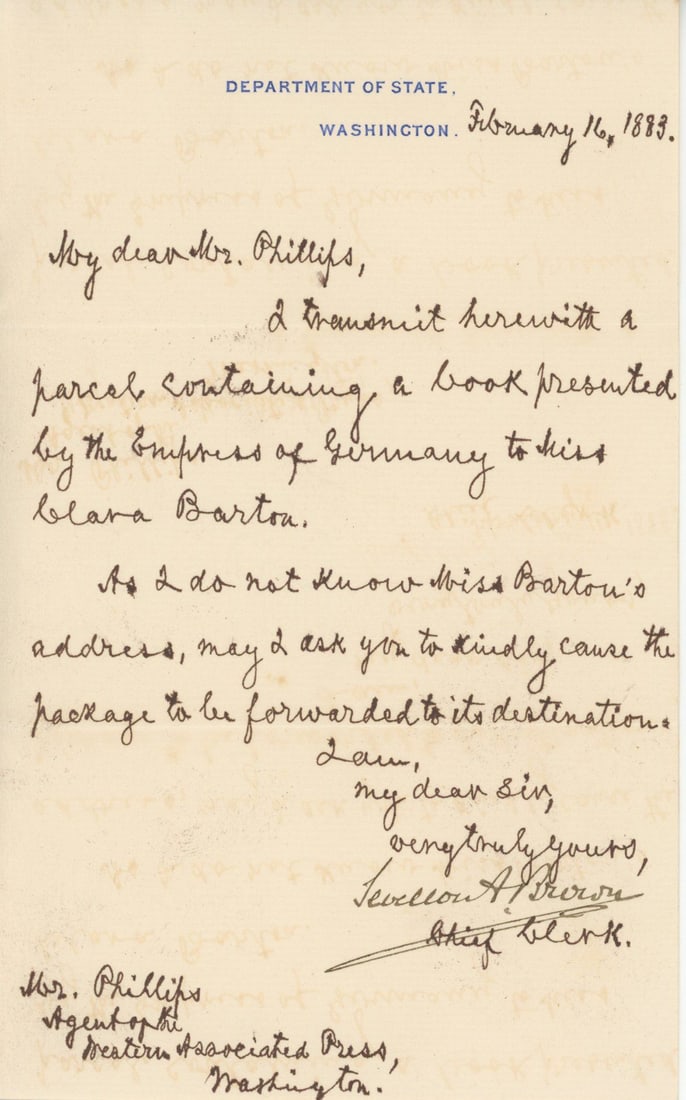 DEPARTMENT OF STATE,
WASHINGTON. February 16, 1883.
My dear Mr. Phillips,
I transmit herewith a
parcel containing a book presented
by the Empress of Germany to Miss
Clara Barton.
As I do not know Miss Barton's
address, may I ask you to kindly cause the
package to be forwarded to its destination.
I am,
my dear Sir,
very truly yours,
Sevellon A. Brown
Chief Clerk.
Mr. Phillips
Agent of the
Western Associated Press,
Washington.